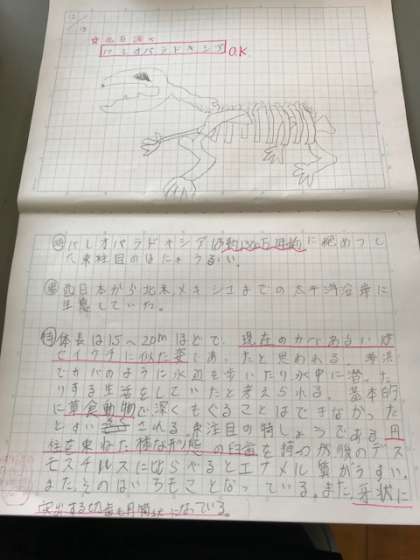 12/13
☆北日海と
パレオパラドキシア O.K
㊙パレオパラドキシアは約1300万年前に絶めつし
た束柱目のほにゅうるい。
西日本から北米メキシコまでの太平洋沿岸に
生息していた。
㊕体長は1.5〜2.0mほどで、現在のカバあるいは
セイウチに似た姿であったと思われる。
でカバのように水辺を歩いたり水中に潜った
りする生活をしていたと考えられる。基本的
に草食動物で深くもぐることはできなかった
とすいさされる。束柱目の特しょうである円
柱を束ねた様な形態の臼歯を持つが後のデス
モスチルスにくらべるとエナメル質がうすい。
またそのはいちもことなっている。また牙状に
突出する切歯も円筒状になっている。